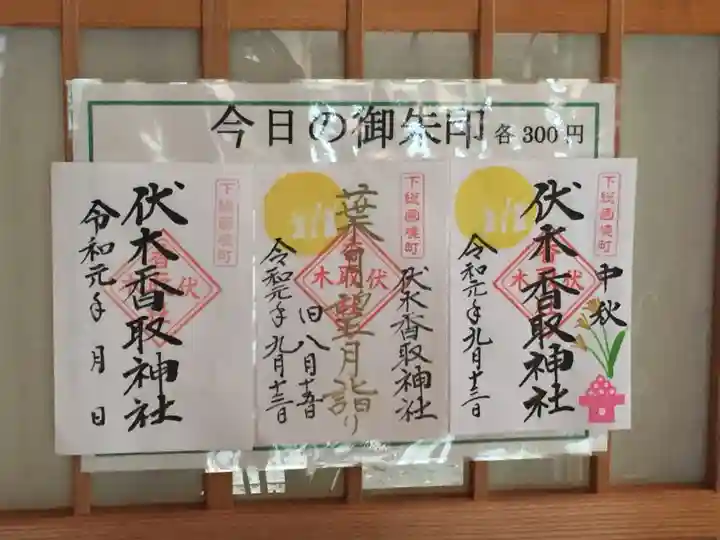 今日の御朱印 各300円
下総國境町
伏木香取神社
令和元年 月 日
下総國境町
伏木香取神社
葉月望月詣り
旧八月十五日
令和元年九月十三日
下総國境町
中秋
伏木香取神社
令和元年九月十三日